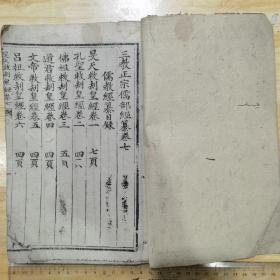 三教正宗儒部經纂卷七
儒教經纂目錄
昊天救刼皇經卷一 七頁
孔聖救刼皇經卷二
佛祖救刼皇經卷三 五頁
道君救刼皇經卷四 四頁
文帝救刼皇經卷五 四頁
呂祖救刼皇經卷六 四頁